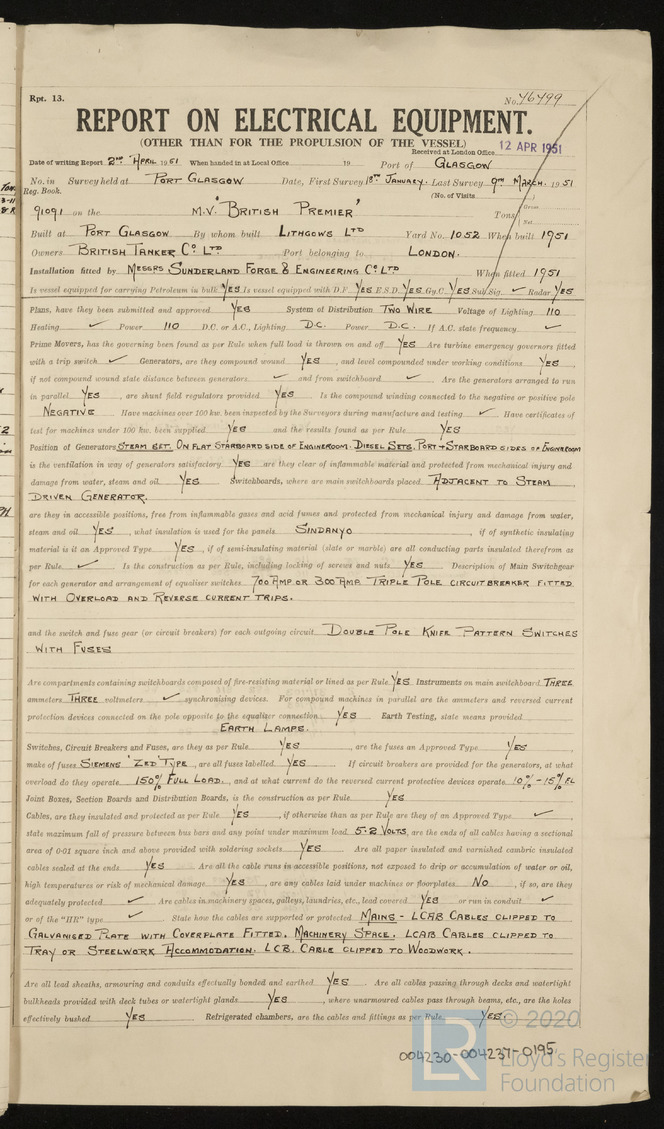 Rpt. 13.
No. 46499
REPORT ON ELECTRICAL EQUIPMENT.
(OTHER THAN FOR THE PROPULSION OF THE VESSEL)
Received at London Office 12 APR 1951
Date of writing Report 2nd April 1951 When handed in at Local Office 19 Port of GLASGOW
No. in Survey held at PORT GLASGOW Date, First Survey 18TH JANUARY. Last Survey 9TH MARCH. 1951
Reg. Book. (No. of Visits )
91091 on the M.V. "BRITISH PREMIER" Tons Gross Net
Built at PORT GLASGOW By whom built LITHGOWS LTD Yard No. 1052 When built 1951
Owners BRITISH TANKER CO LTD Port belonging to LONDON.
Installation fitted by MESSRS SUNDERLAND FORGE & ENGINEERING CO LTD When fitted 1951
Is vessel equipped for carrying Petroleum in bulk YES Is vessel equipped with D.F. YES E.S.D. YES Gy.C. YES Sub.Sig. ✓ Radar YES
Plans, have they been submitted and approved YES System of Distribution TWO WIRE Voltage of Lighting 110
Heating ✓ Power 110 D.C. or A.C., Lighting D.C. Power D.C. If A.C. state frequency ✓
Prime Movers, has the governing been found as per Rule when full load is thrown on and off YES Are turbine emergency governors fitted
with a trip switch ✓ Generators, are they compound wound YES, and level compounded under working conditions YES,
if not compound wound state distance between generators ✓ and from switchboard ✓ Are the generators arranged to run
in parallel YES, are shunt field regulators provided YES Is the compound winding connected to the negative or positive pole
NEGATIVE Have machines over 100 kw. been inspected by the Surveyors during manufacture and testing ✓ Have certificates of
test for machines under 100 kw. been supplied YES and the results found as per Rule YES
Position of Generators STEAM SET. ON FLAT STARBOARD SIDE OF ENGINEROOM. DIESEL SETS. PORT & STARBOARD SIDES OF ENGINEROOM
is the ventilation in way of generators satisfactory YES are they clear of inflammable material and protected from mechanical injury and
damage from water, steam and oil YES Switchboards, where are main switchboards placed ADJACENT TO STEAM
DRIVEN GENERATOR.
are they in accessible positions, free from inflammable gases and acid fumes and protected from mechanical injury and damage from water,
steam and oil YES, what insulation is used for the panels SINDANYO, if of synthetic insulating
material is it an Approved Type YES, if of semi-insulating material (slate or marble) are all conducting parts insulated therefrom as
per Rule ✓ Is the construction as per Rule, including locking of screws and nuts YES Description of Main Switchgear
for each generator and arrangement of equaliser switches 700 AMP OR 300 AMP. TRIPLE POLE CIRCUITBREAKER FITTED
WITH OVERLOAD AND REVERSE CURRENT TRIPS.
and the switch and fuse gear (or circuit breakers) for each outgoing circuit DOUBLE POLE KNIFE PATTERN SWITCHES
WITH FUSES
Are compartments containing switchboards composed of fire-resisting material or lined as per Rule YES Instruments on main switchboard THREE
ammeters THREE voltmeters ✓ synchronising devices. For compound machines in parallel are the ammeters and reversed current
protection devices connected on the pole opposite to the equalizer connection YES Earth Testing, state means provided
EARTH LAMPS.
Switches, Circuit Breakers and Fuses, are they as per Rule YES, are the fuses an Approved Type YES,
make of fuses SIEMENS 'ZED' TYPE, are all fuses labelled YES If circuit breakers are provided for the generators, at what
overload do they operate 150% FULL LOAD., and at what current do the reversed current protective devices operate 10% - 15% FL
Joint Boxes, Section Boards and Distribution Boards, is the construction as per Rule YES
Cables, are they insulated and protected as per Rule YES, if otherwise than as per Rule are they of an Approved Type ✓,
state maximum fall of pressure between bus bars and any point under maximum load 5.2 VOLTS, are the ends of all cables having a sectional
area of 0·01 square inch and above provided with soldering sockets YES Are all paper insulated and varnished cambric insulated
cables sealed at the ends YES Are all the cable runs in accessible positions, not exposed to drip or accumulation of water or oil,
high temperatures or risk of mechanical damage YES, are any cables laid under machines or floorplates NO, if so, are they
adequately protected ✓ Are cables in machinery spaces, galleys, laundries, etc., lead covered YES or run in conduit ✓
or of the "HR" type ✓ State how the cables are supported or protected MAINS - LCAB CABLES CLIPPED TO
GALVANISED PLATE WITH COVERPLATE FITTED. MACHINERY SPACE. LCAB CABLES CLIPPED TO
TRAY OR STEELWORK ACCOMMODATION. LCB. CABLE CLIPPED TO WOODWORK.
Are all lead sheaths, armouring and conduits effectually bonded and earthed YES Are all cables passing through decks and watertight
bulkheads provided with deck tubes or watertight glands YES, where unarmoured cables pass through beams, etc., are the holes
effectively bushed YES Refrigerated chambers, are the cables and fittings as per Rule YES.
004230-004237-0195
LR © 2020
Lloyd's Register
Foundation